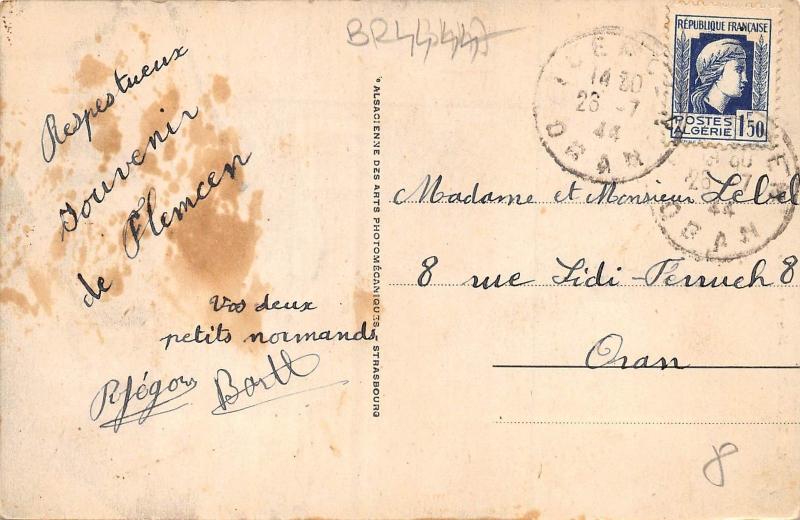 Respectueux
Souvenir
de Tlemcen
Vos deux
petits normands
ALSACIENNE DES ARTS PHOTOMÉCANIQUES - STRASBOURG
RÉPUBLIQUE FRANÇAISE
POSTES
ALGÉRIE
1F50
TLEMCEN
14 30
26 -7
44
ORAN
30
26 -7
44
ORAN
Madame et Monsieur Lebel
8 rue Sidi-Ferruch 8
Oran
8